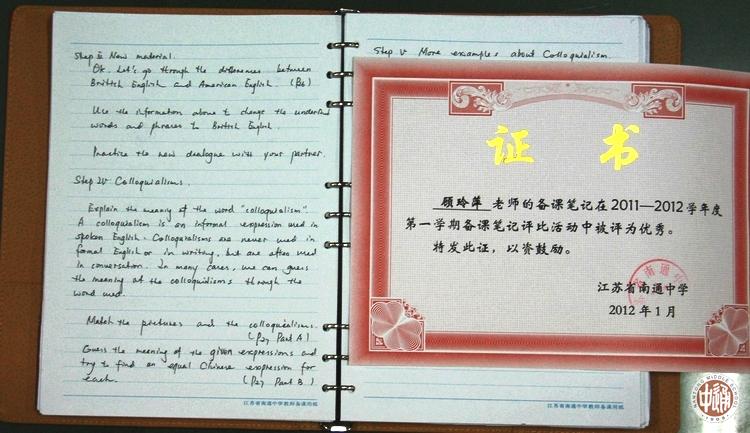 Step III New material.
Ok. Let's go through the differences between
British English and American English. (P6)
Use the information above to change the underlined
words and phrases to British English.
Practice the new dialogue with your partner.
Step IV Colloquialisms.
Explain the meaning of the word "colloquialism".
A colloquialism is an informal expression used in
spoken English. Colloquialisms are never used in
formal English or in writing, but are often used
in conversation. In many cases, we can guess
the meaning of the colloquialisms through the
word used.
Match the pictures and the colloquialisms.
(P27 Part A)
Guess the meaning of the given expressions and
try to find an equal Chinese expression for
each. (P27 Part B.)
江苏省南通中学教师备课用纸
Step V More examples about Colloquialism.
证 书
顾玲萍 老师的备课笔记在2011—2012学年度
第一学期备课笔记评比活动中被评为优秀。
特发此证，以资鼓励。
江苏省南通中学
2012年1月
江苏省南通中学教师备课用纸